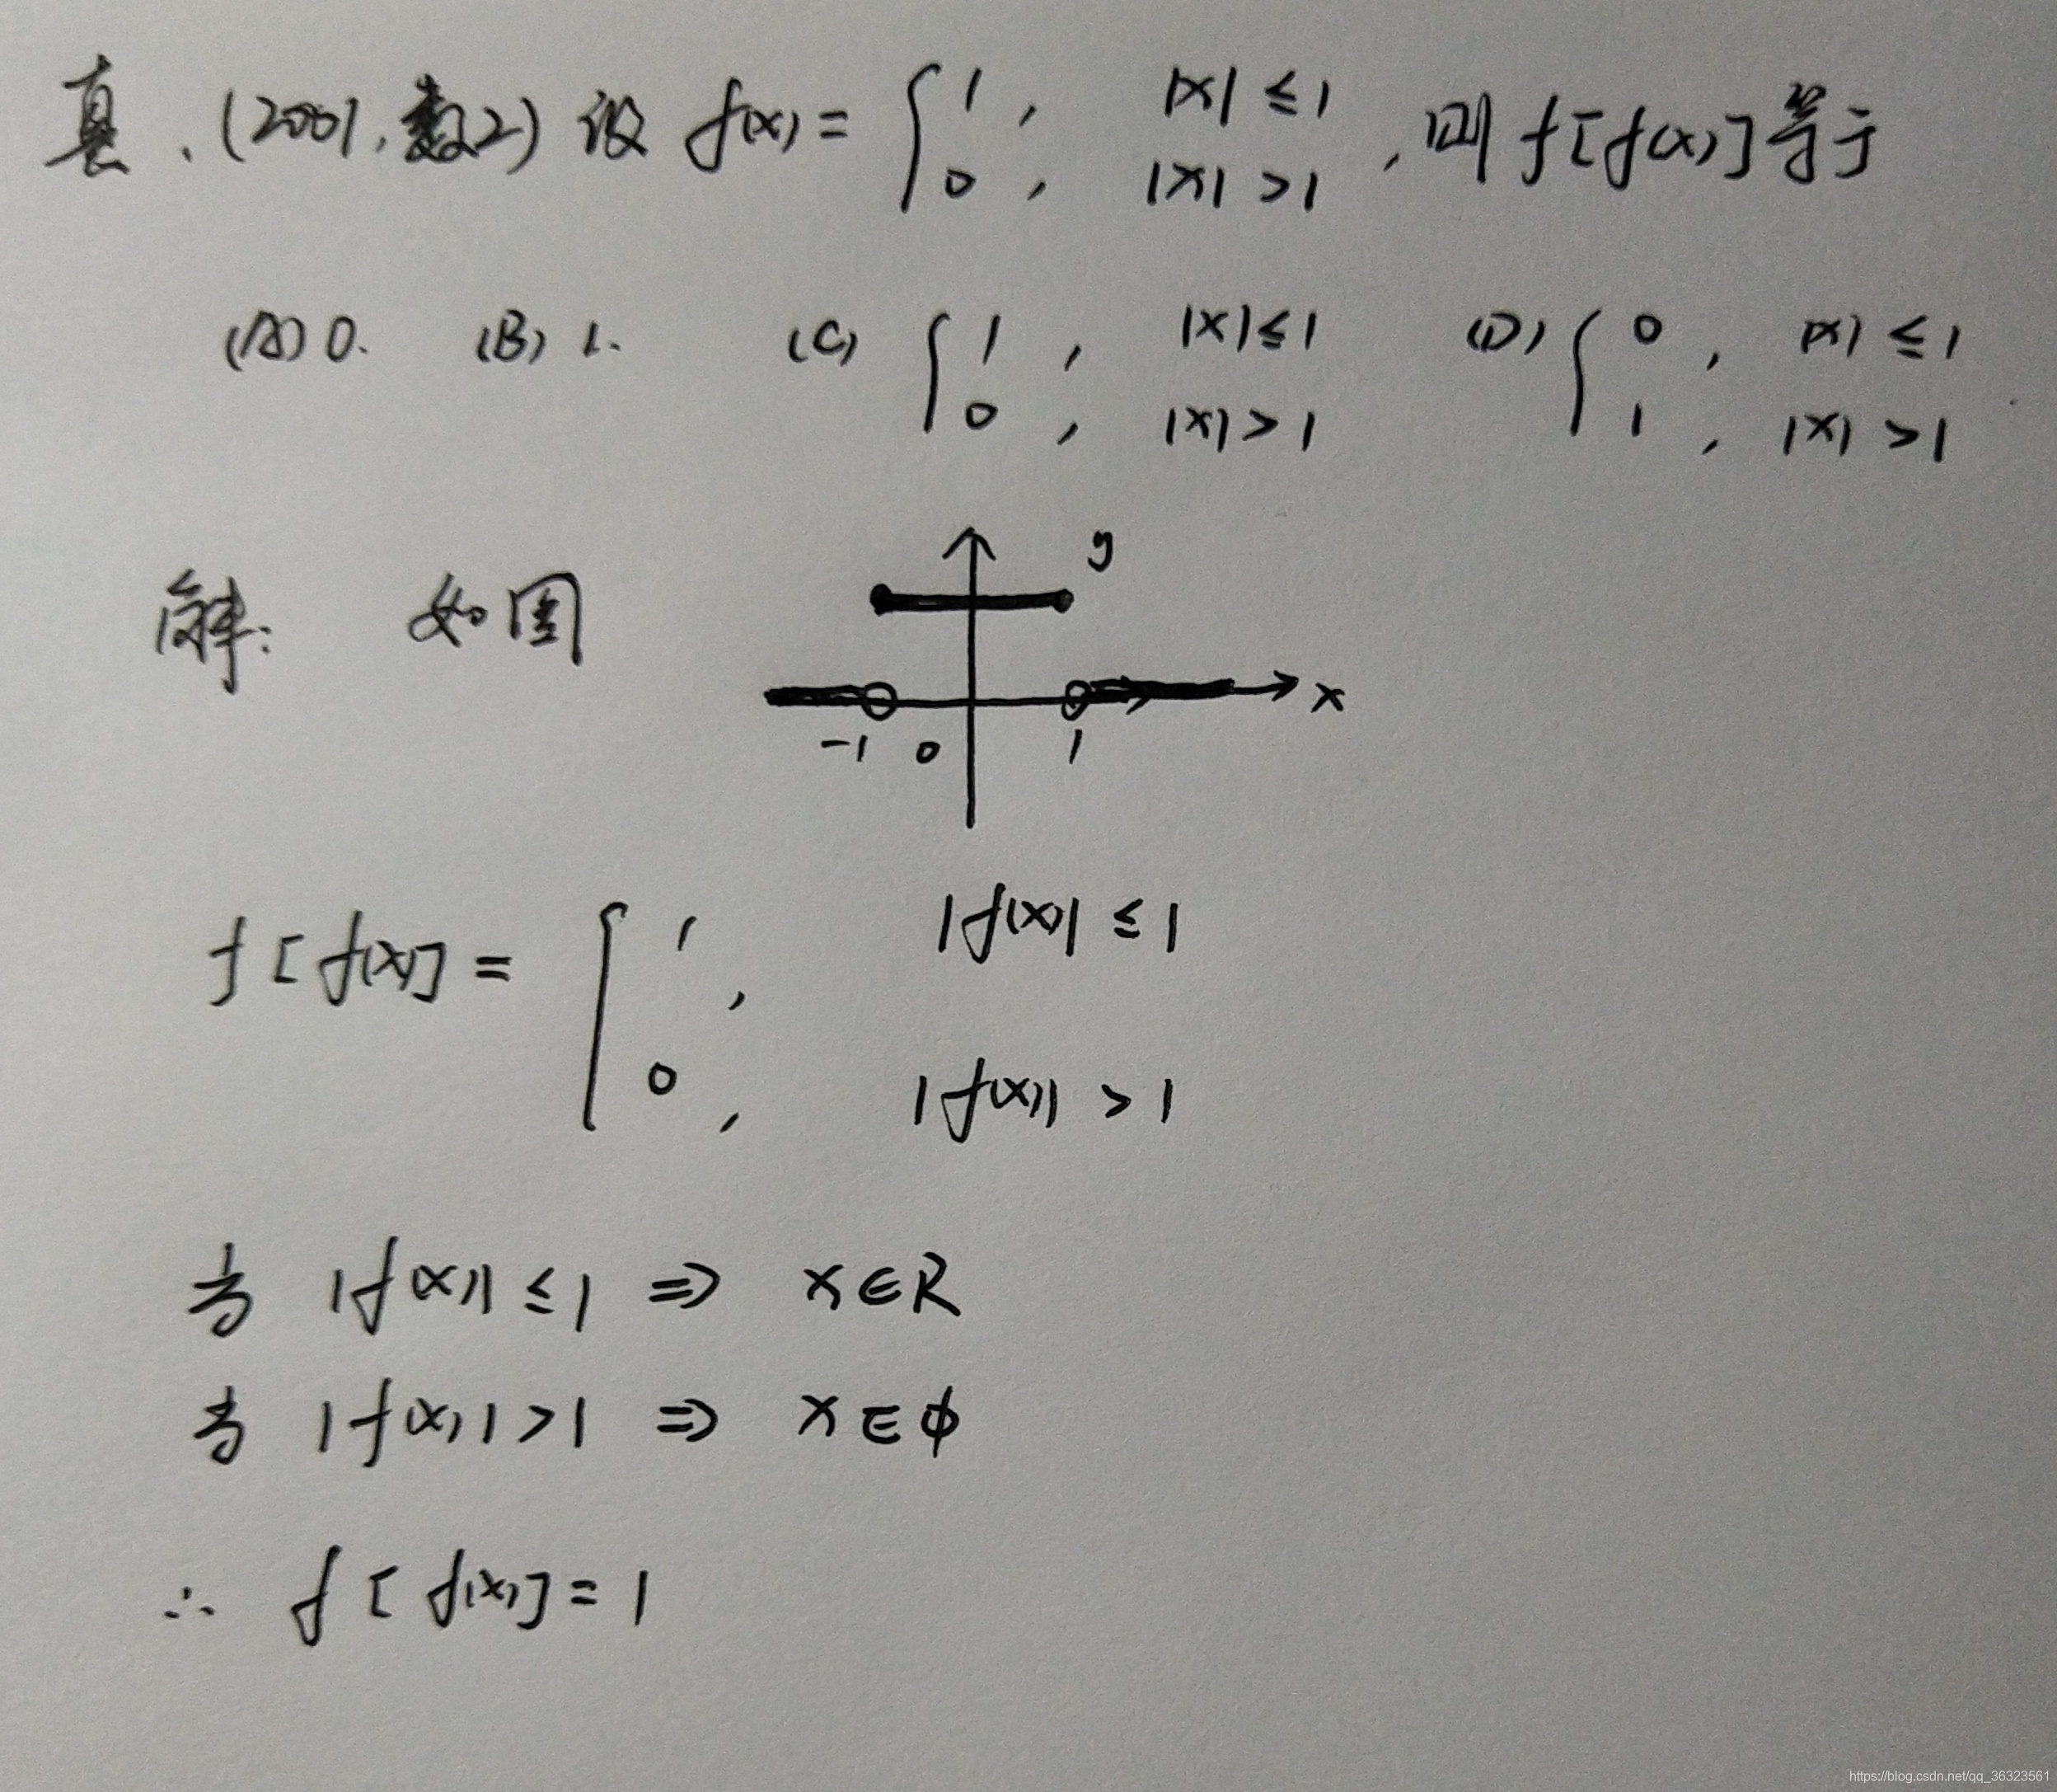 真、(2001,数2) 设 f(x) = { 1, |x| ≤ 1 ; 0, |x| > 1 , 则 f[f(x)] 等于
(A) 0. (B) 1. (C) { 1, |x| ≤ 1 ; 0, |x| > 1 (D) { 0, |x| ≤ 1 ; 1, |x| > 1
解: 如图
y
x
-1 0 1
f[f(x)] = { 1, |f(x)| ≤ 1 ; 0, |f(x)| > 1
当 |f(x)| ≤ 1 ⇒ x∈R
当 |f(x)| > 1 ⇒ x∈ϕ
∴ f[f(x)] = 1
https://blog.csdn.net/qq_36323561